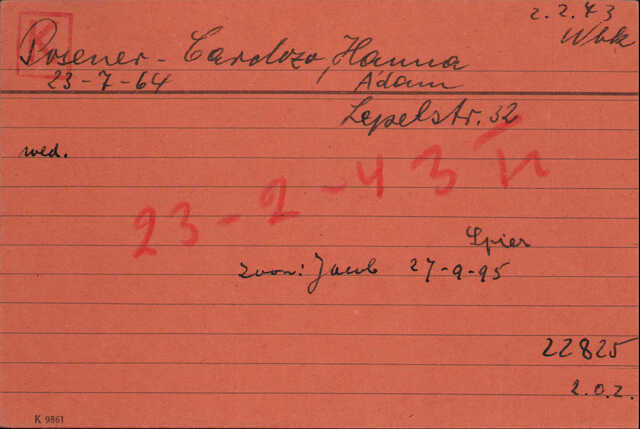 2.2.43
Wbk
Posener-Cardozo, Hanna
23-7-64 Adam
Lepelstr. 32
wed.
23-2-43
Spier
zoon: Jacob 27-9-95
22825
z.o.z.
K 9861